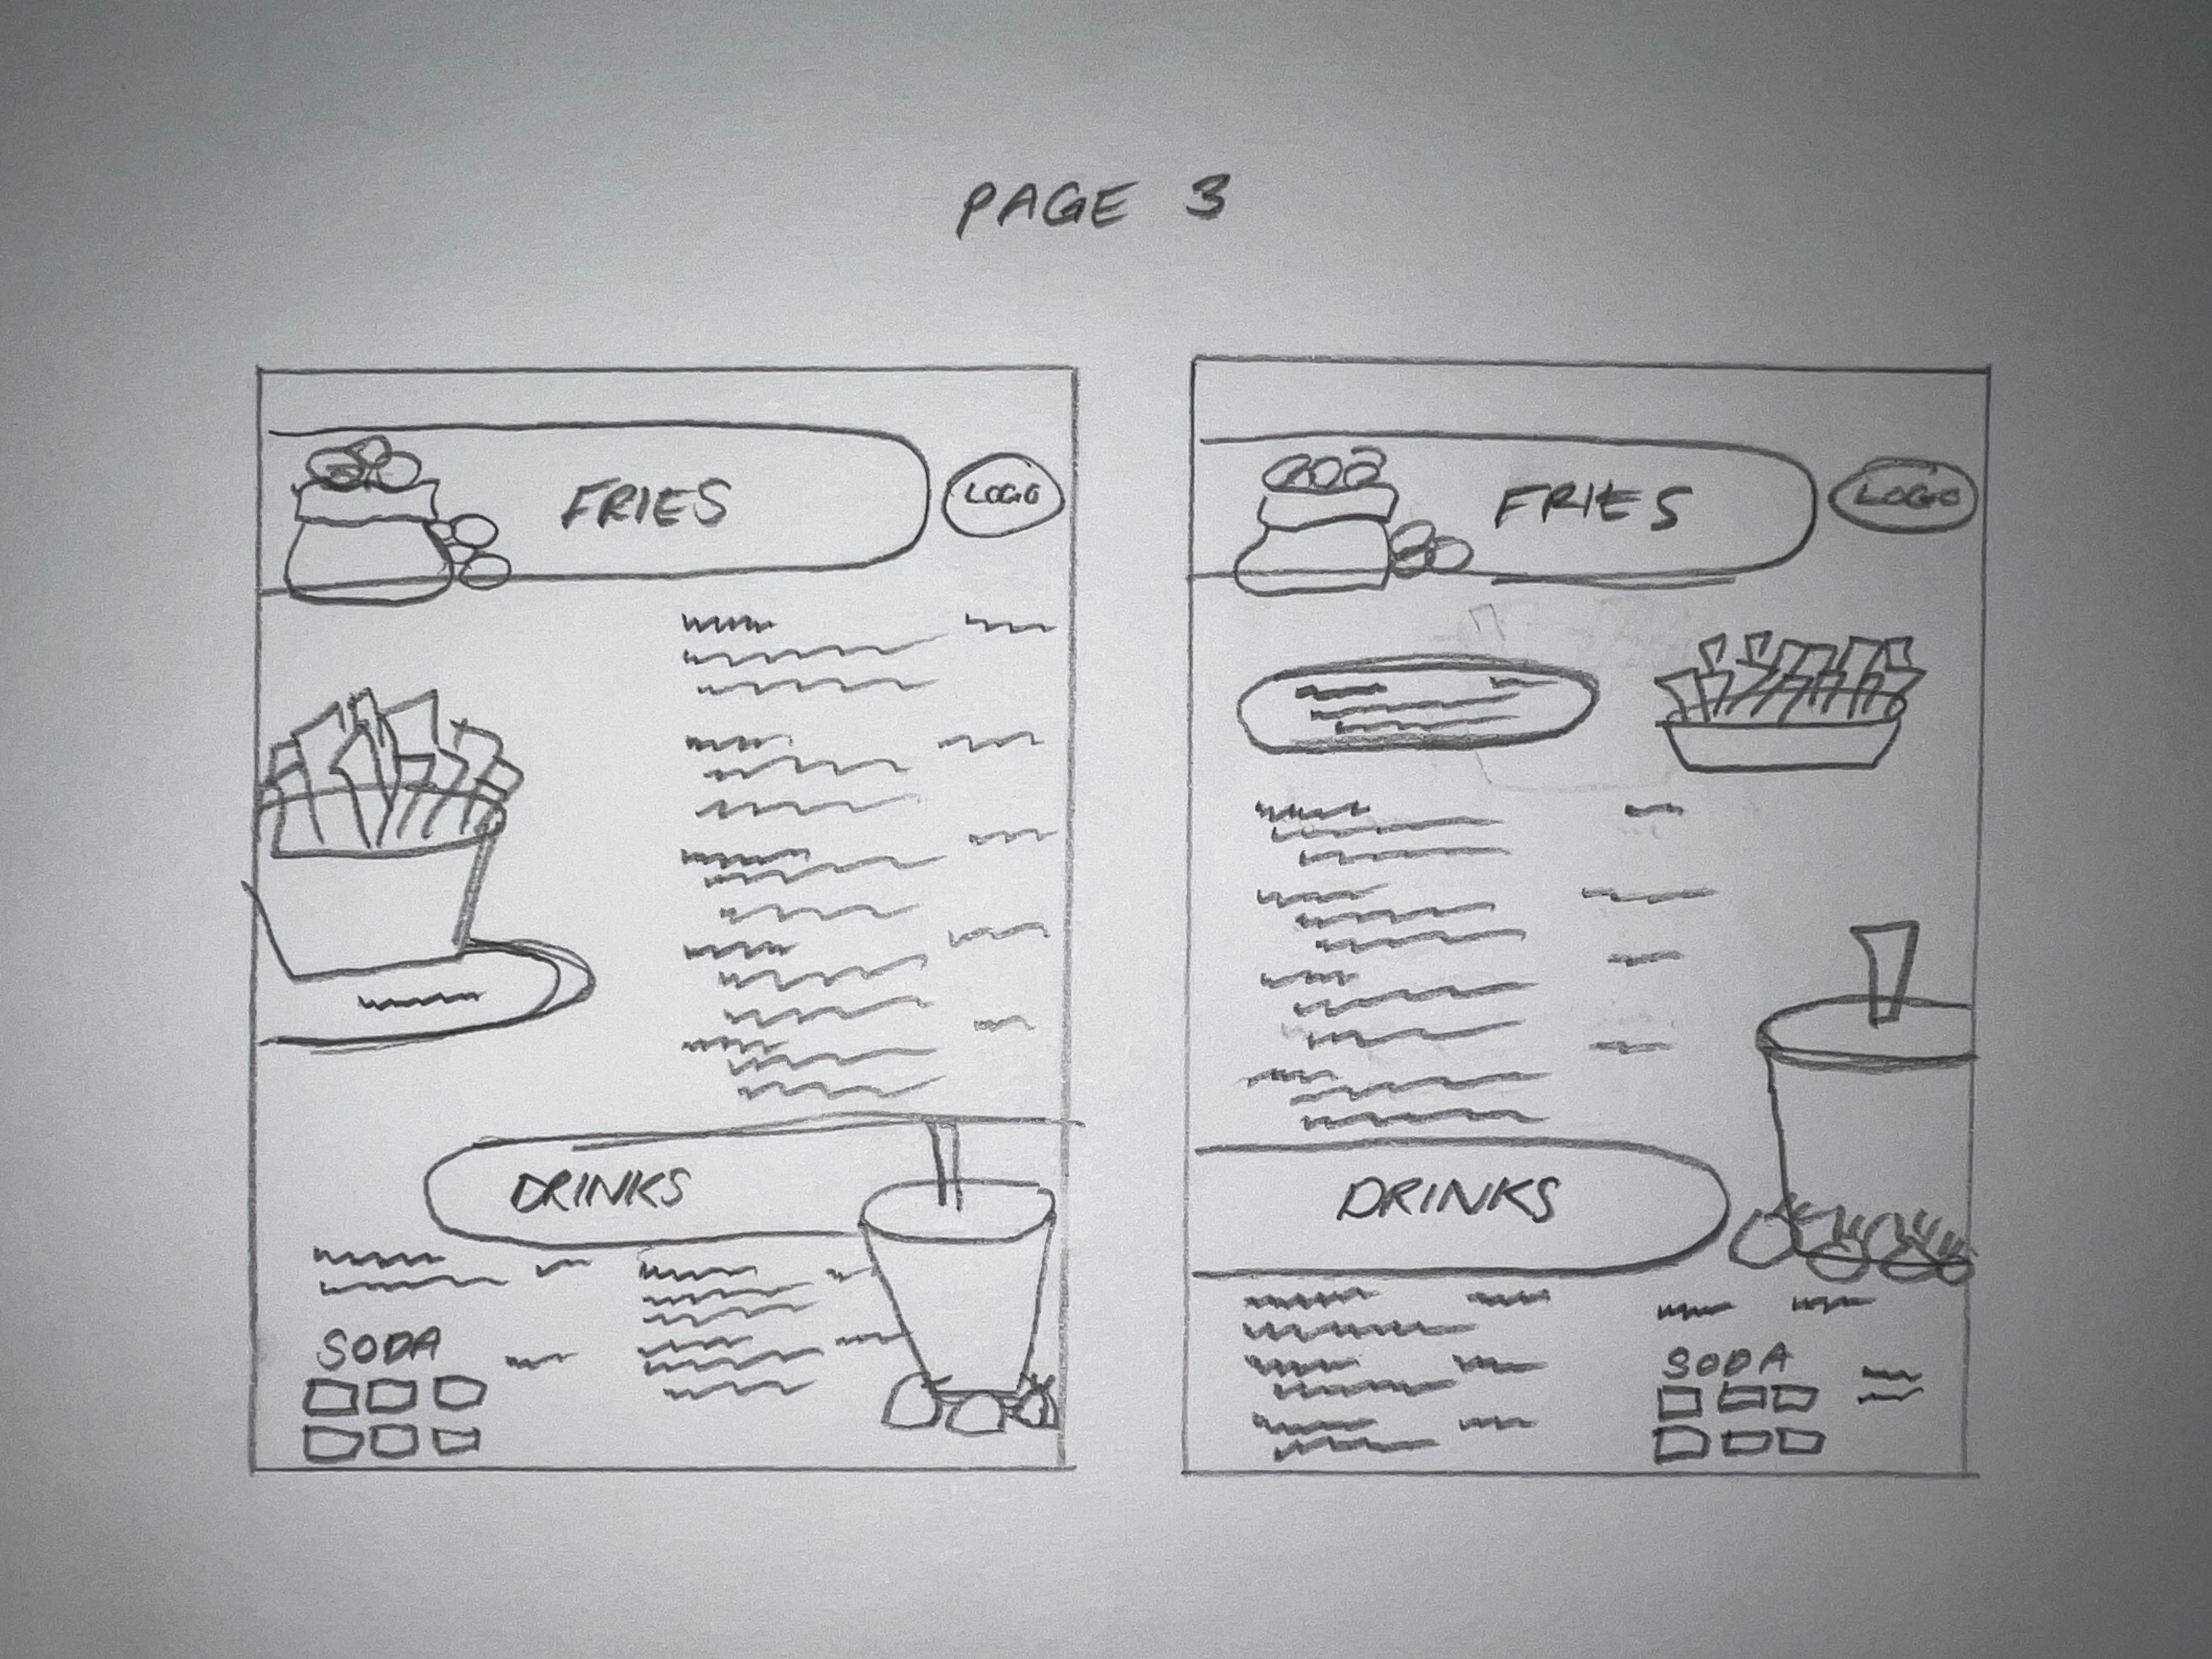 PAGE 3
FRIES
LOGO
DRINKS
SODA
FRIES
LOGO
DRINKS
SODA